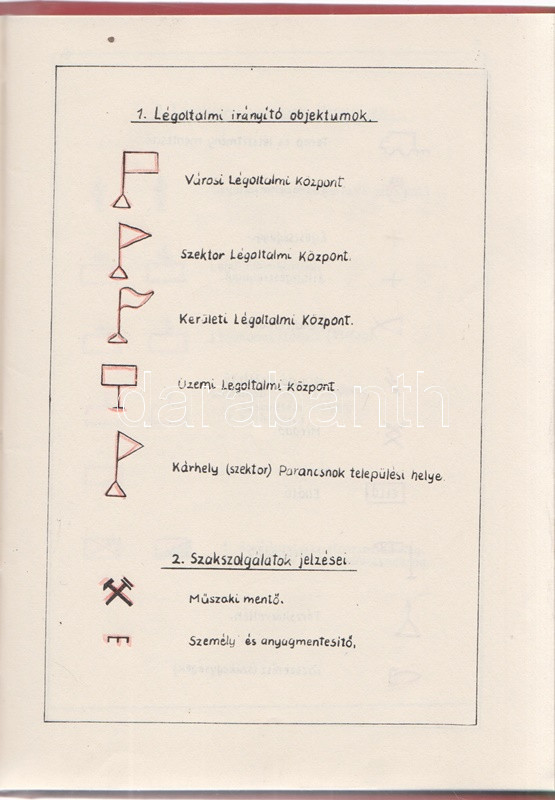 1. Légoltalmi irányító objektumok.
Városi Légoltalmi Központ
Szektor Légoltalmi Központ.
Kerületi Légoltalmi Központ.
Üzemi Légoltalmi Központ
darabanth
Kárhely (szektor) Parancsnok települési helye
2. Szakszolgálatok jelzései.
Műszaki mentő.
Személy és anyagmentesitő,